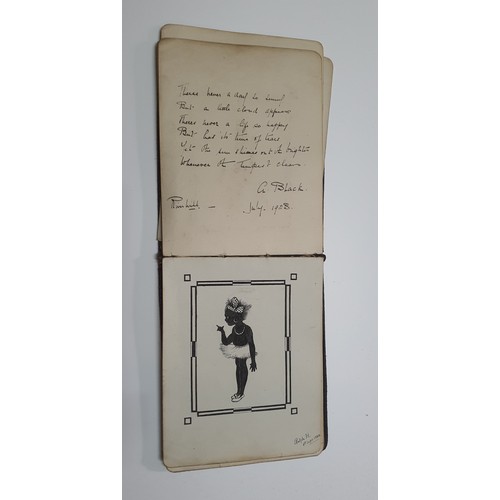 There never a day so sunny
But a little cloud appears
There never a life so happy
But has its time of tears
Yet the sun shines out the brighter
Whenever the tempest clears
A Black
July. 1928.